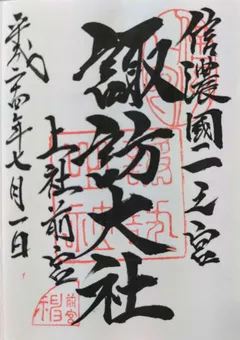 信濃國一之宮
諏訪大社
上社前宮
平成二十四年七月一日